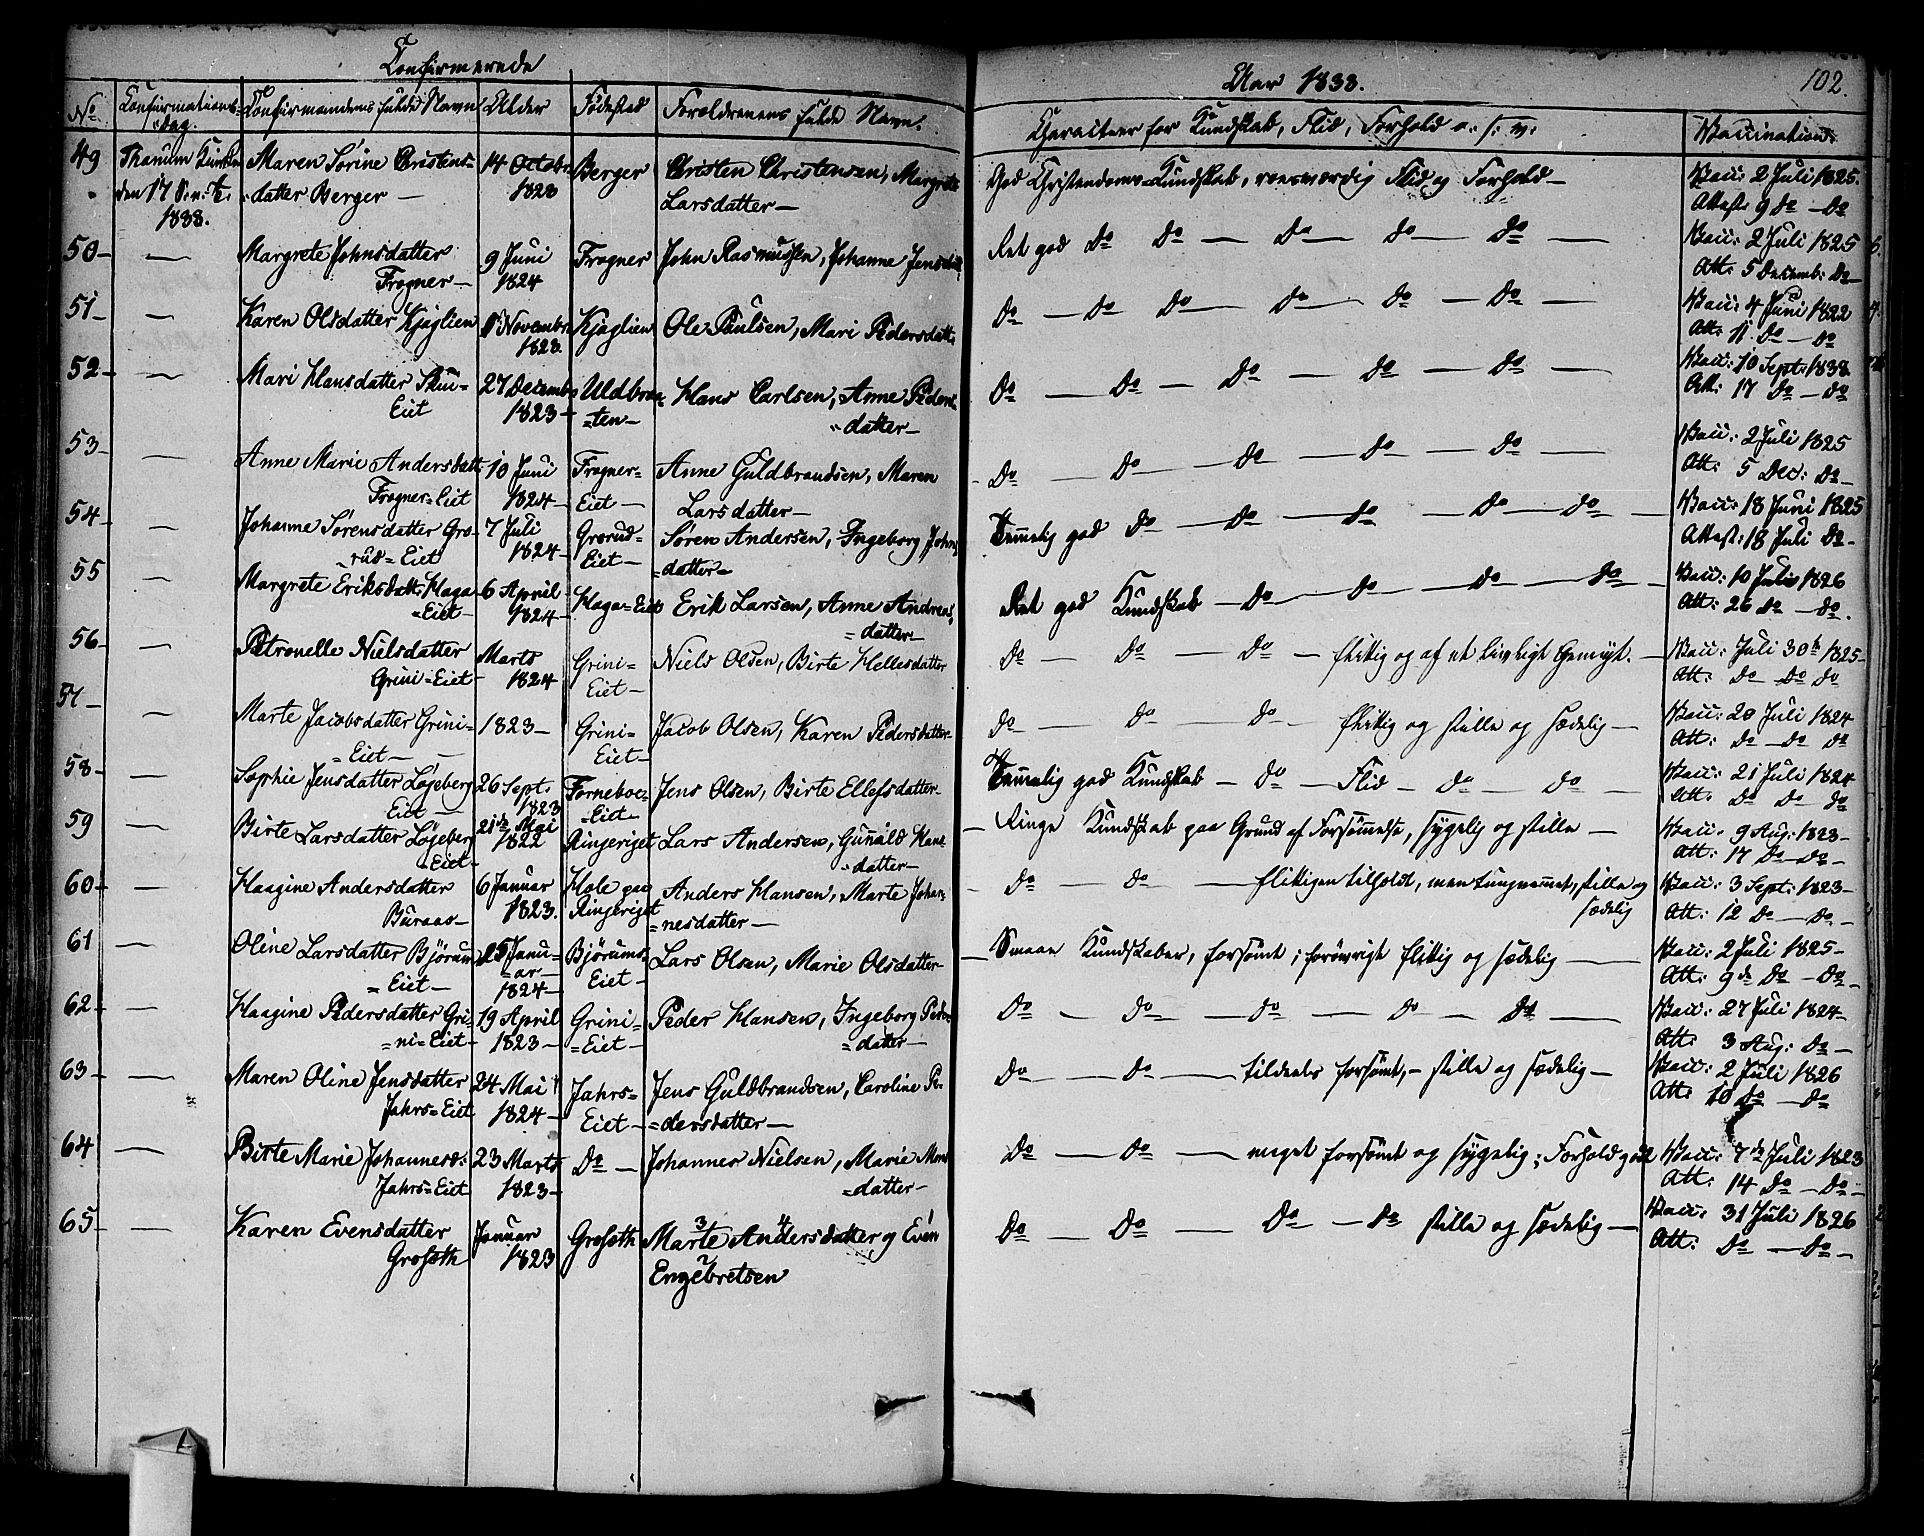 Confirmerede
Aar 1838.
102.
No
Confirmations-dag.
Confirmandens fulde Navn
Alder
Födested
Foreldrenens fulde Navn.
Characteer for Kundskab, Flid, Forhold o: s: v:
Vaccination
49 Thanum Kirke den 17 S.n.t. 1838. Maren Sörine Christens=datter Berger — 14 Octobr 1823 Berger Christen Christensen, Margrete Larsdatter — God Christendoms-Kundskab, roesværdig Flid og Forhold — Vacc: 2 Juli 1825. Attest: 9 Do — Do
50 — Margrete Johnsdatter Frogner — 9 Juni 1824 Frogner John Rasmussen, Johanne Jensdatt Ret god Do Do — Do — Do — Do — Vacc: 2 Juli 1825 Att: 5 Decemb: Do —
51 — Karen Olsdatter Kjaglien Novembr 1823. Kjaglien Ole Paulsen, Mari Pedersdatt Do — Do Do — Do — Do — Do — Vacc: 4 Juni 1822 Att: 11 Do — Do
52 — Mari Hansdatter Skui=Eiet 27 Decembr 1823 — Uldbraa=ten — Hans Carlsen, Anne Peders=datter — Do — Do — Do — Do — Do — Vacc: 10 Sept: 1838 Att: 17 Do — Do
53 — Anne Marie Andersdatt Frogner=Eiet 10 Juni 1824 — Frogner=Eiet — Anne Guldbrandsen, Maren Larsdatter — Do — Do — Do — Do — Do — Vacc: 2 Juli 1825 Att: 5 Dec: Do —
54 — Johanne Sörensdatter Gro=rud=Eiet 7 Juli 1824 — Grorud=Eiet — Sören Andersen, Ingeborg Johns=datter — Temmelig god Do — Do — Do — Do — Do — Vacc: 18 Juni 1825 Attest: 18 Juli Do —
55 — Margrete Eriksdatt: Haga=Eiet — 6 April 1824 — Haga=Eiet Erik Larsen, Anne Andreas=datter — Ret god Kundskab — Do — Do — Do — Do — Vacc: 10 Juli 1826 Att: 26 Do — Do.
56 — Petronelle Nielsdatter Grini=Eiet — Marts 1824 Grini=Eiet — Niels Olsen, Birte Hellesdatter Do — Do — Do — flittig og af et livligt Gemyt. — Vacc: Juli 30te 1825 — Att: Do — Do Do
57 — Marte Jacobsdatter Grini=Eiet — 1823 — Grini=Eiet — Jacob Olsen, Karen Pedersdatter — Do — Do — Do — flittig og stille og sædelig — Vacc: 20 Juli 1824 Att: Do — Do Do
58 — Sophie Jensdatter Löjeberg Eiet — 26 Sept: 1823 Forneboe=Eiet — Jens Olsen, Birte Ellefsdatter — Temmelig god Kundskab — Do — Flid — Do — Do — Vacc: 21 Juli 1824 Att: Do Do Do
59 — Birte Larsdatter Löjeberg Eiet — 21de Mai 1822 Ringeriget Lars Andersen, Gunnild Hans=datter — Ringe Kundskab paa Grund af Forsömmelse, sygelig og stille — Vacc: 9 Aug: 1823 — Att: 17 Do — Do —
60 — Haagine Andersdatter Buraas — 6 Januar 1823. Hole paa Ringeriget Anders Hansen, Marte Johan=nesdatter — Do — Do — flittigen tilholdt, men tungnemmet, stille og sædelig Vacc: 3 Sept: 1823 — Att: 12 Do — Do —
61 — Oline Larsdatter Björum=Eiet — 25 Janu=ar 1824 — Björums=Eiet — Lars Olsen, Marie Olsdatter — Smaae Kundskaber, forsömt; forövrigt flittig og sædelig — Vacc: 2 Juli 1825 — Att: 9de Do — Do —
62 — Haagine Pedersdatter Gri=ni=Eiet — 19 April 1823 — Grini=Eiet — Peder Hansen, Ingeborg Peders=datter — Do — Do — Do — Do — Do — Vacc: 27 Juli 1824 — Att: 3 Aug: Do —
63 — Maren Oline Jensdatter Jahrs=Eiet 24 Mai 1824 — Jahrs=Eiet — Jens Guldbrandsen, Caroline Pe=dersdatter — Do — Do — tildeels forsömt, — stille og sædelig — Vacc: 2 Juli 1826 Att: 10 Do — Do
64 — Birte Marie Johannesd: Jahrs=Eiet 23 Marts 1823 — Do — Johannes Nielsen, Marie =datter — Do — Do — meget forsömt og sygelig; Forhold godt Vacc: 7de Juli 1823 Att: 14 Do — Do —
65 — Karen Evensdatter Grosoth Januar 1823 Grosoth Marte Andersdatter og Even Engebretsen Do — Do — Do — Do stille og sædelig — Vacc: 31 Juli 1826 Att: Do — Do —